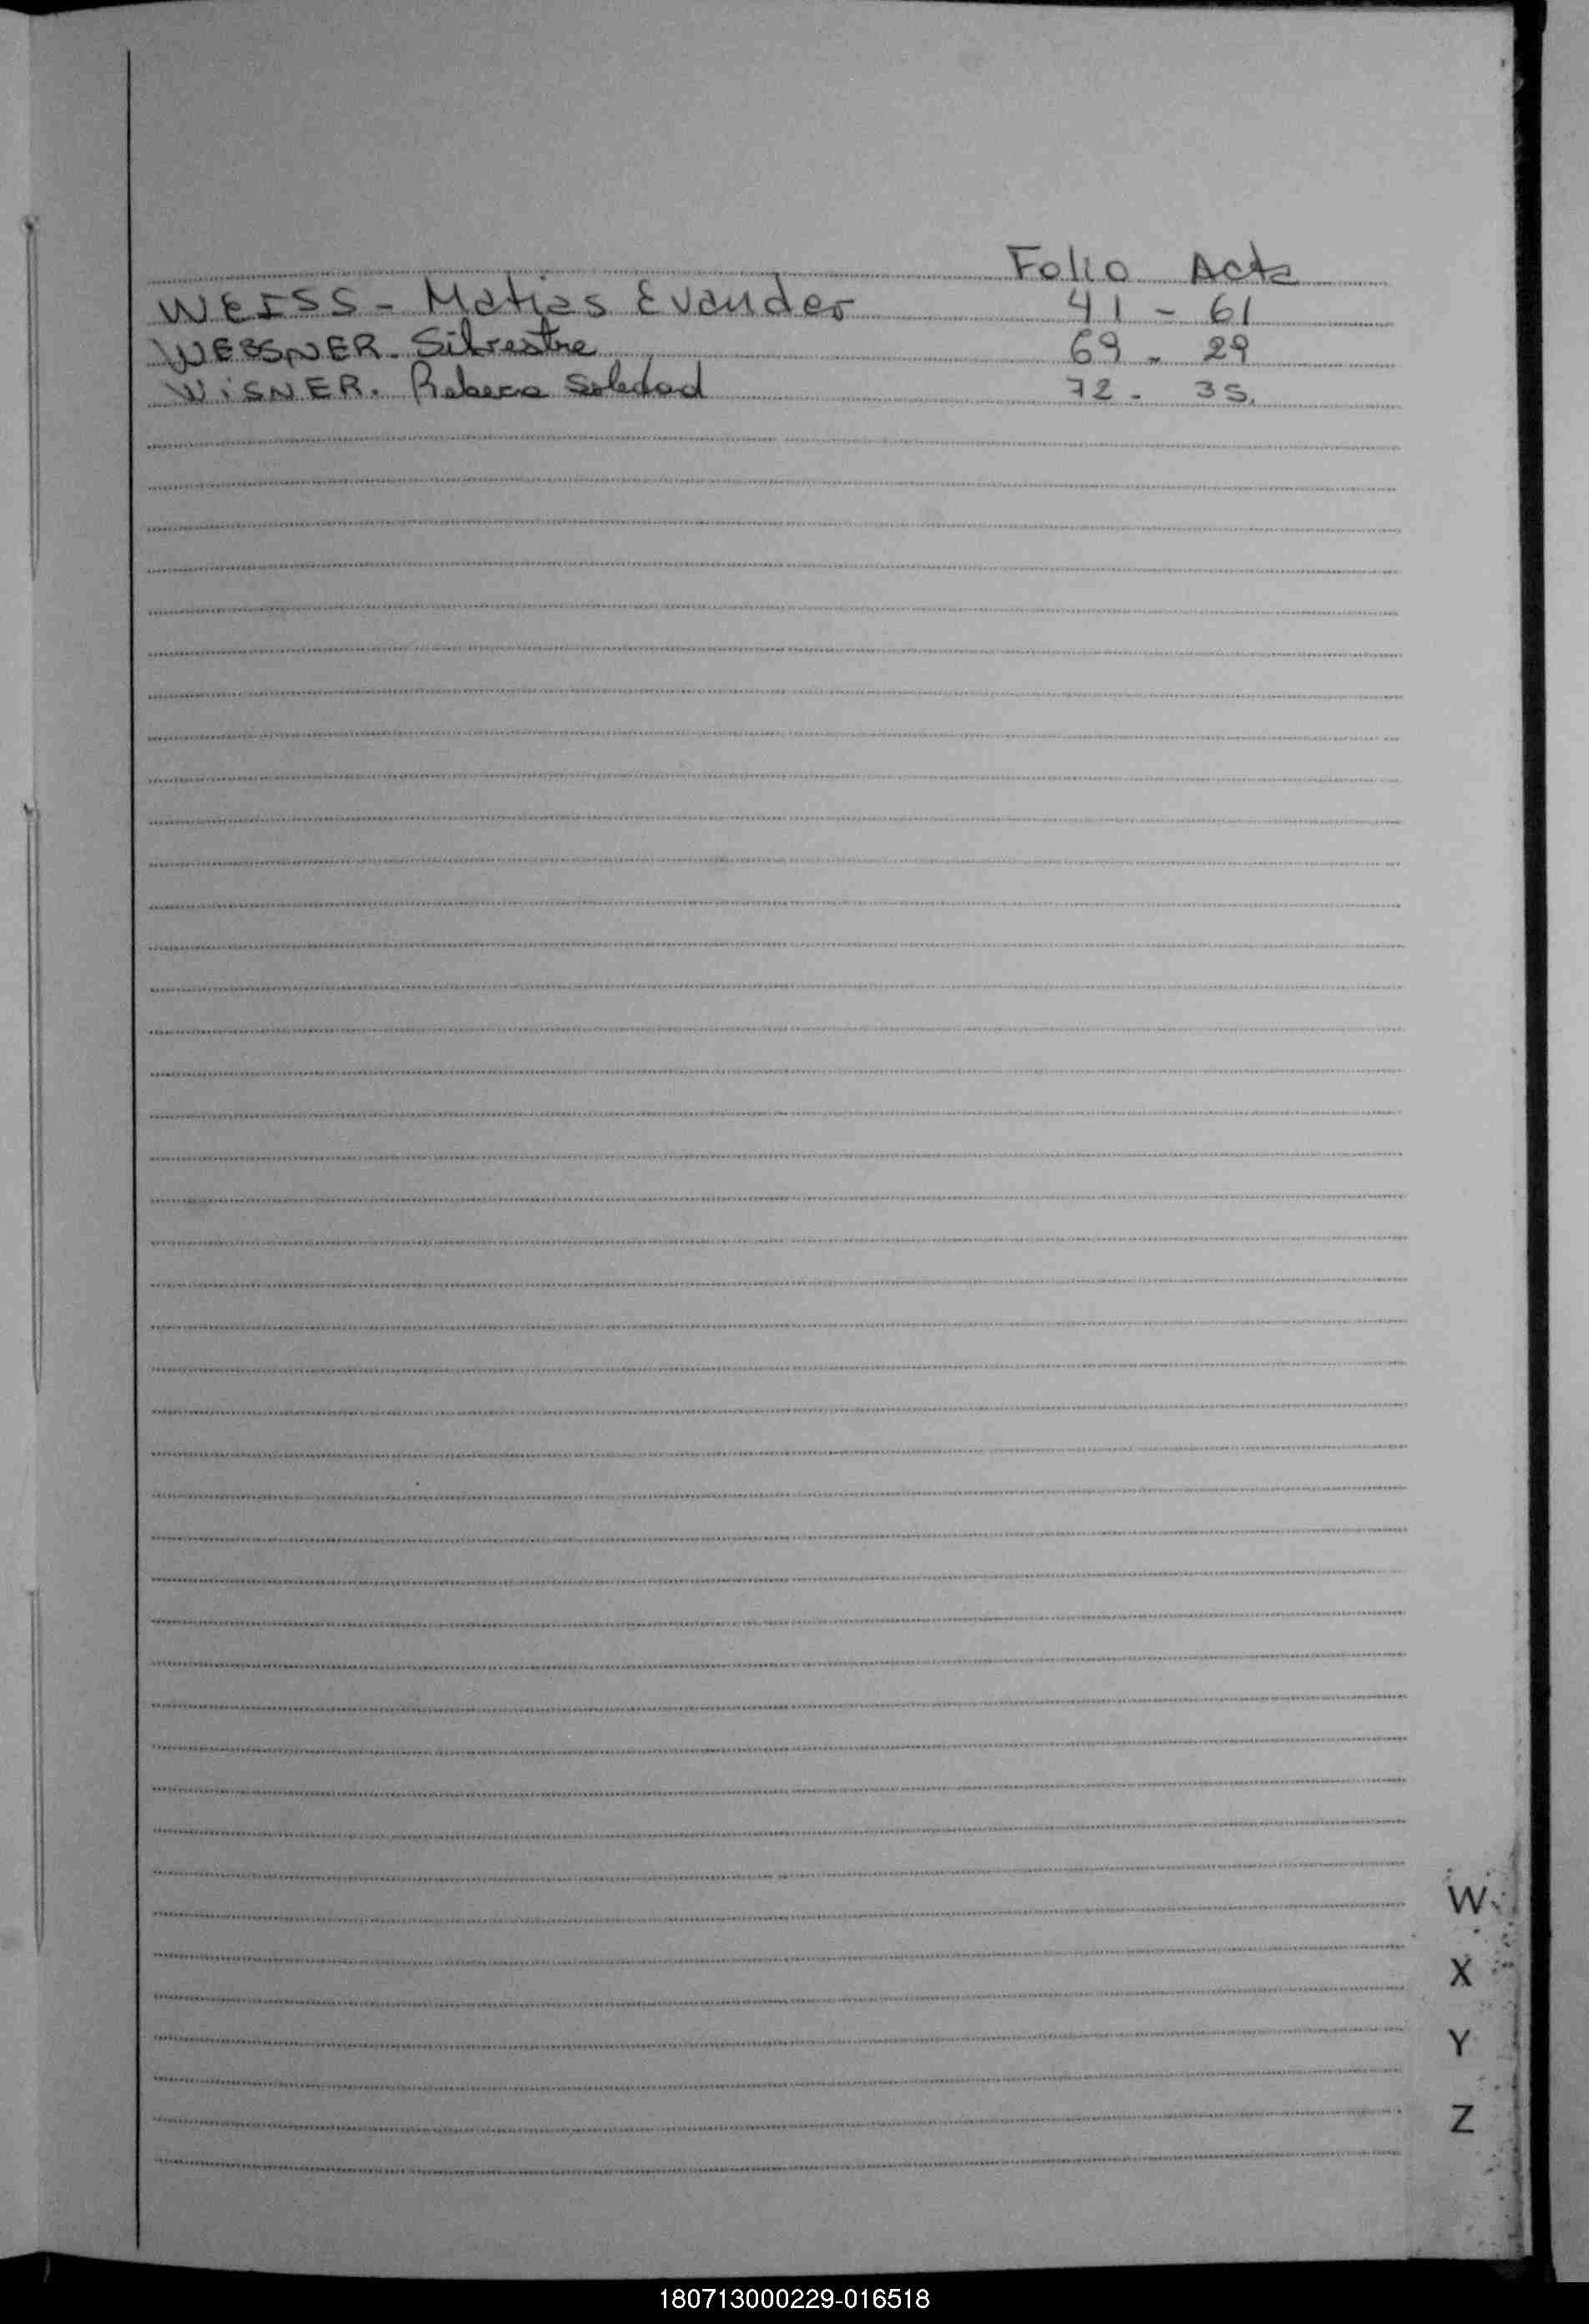 Folio Acta
WEISS - Matias Evander 41 - 61
WESSNER. Silvestre 69 - 29
WiSNER. Rebeca Soledad 72 - 35.
W
X
Y
Z
180713000229-016518